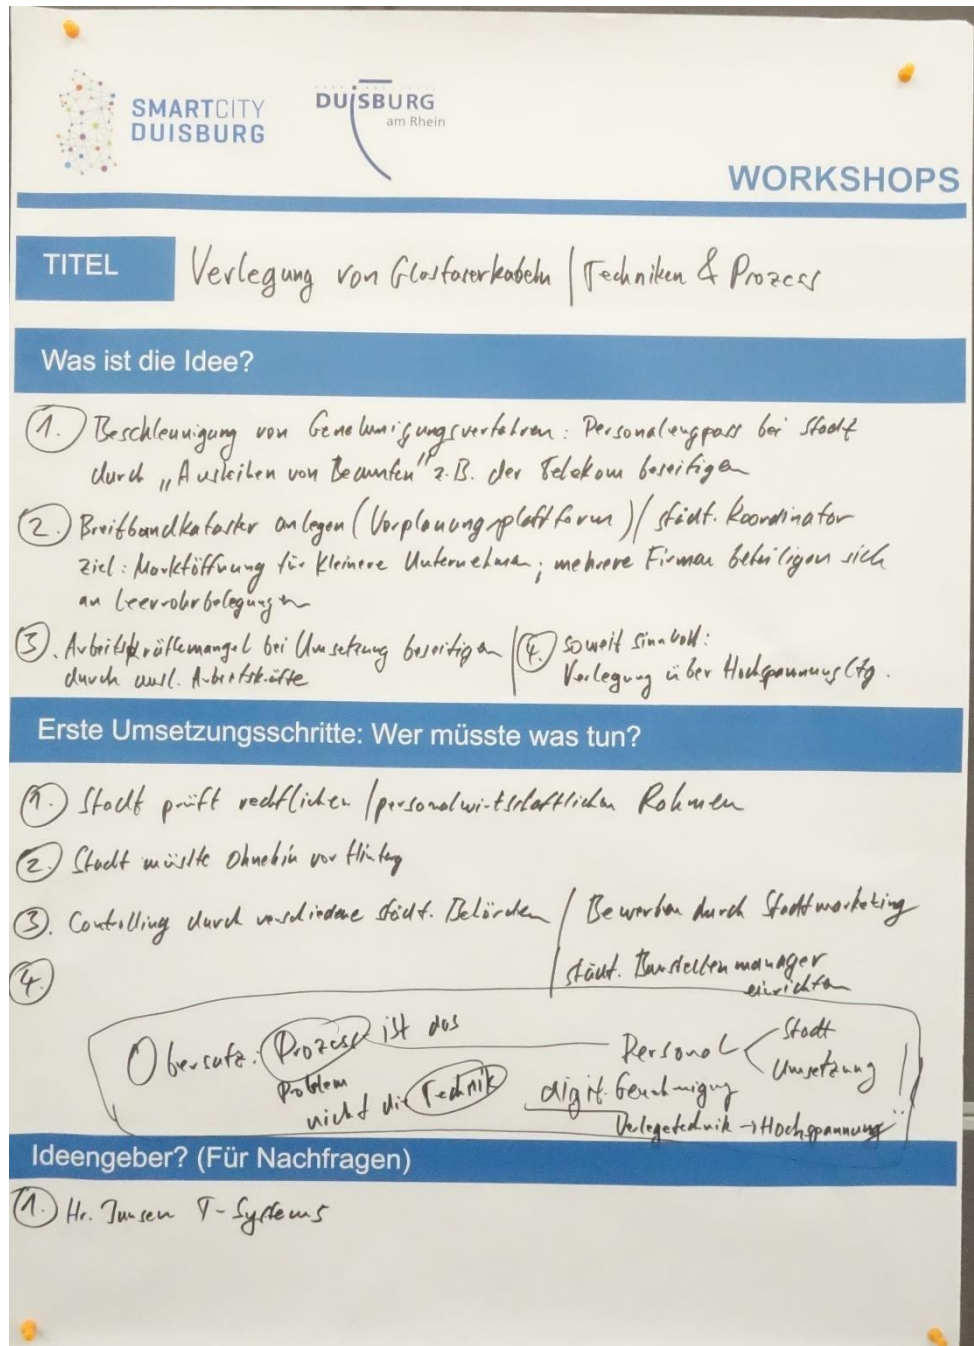 SMARTCITY
DUISBURG
DUISBURG
am Rhein
WORKSHOPS
TITEL
Verlegung von Glasfaserkabeln | Techniken & Prozess
Was ist die Idee?
1. Beschleunigung von Genehmigungsverfahren: Personalengpass bei Stadt
durch „Ausleihen von Beamten" z.B. der Telekom beseitigen
2. Breitbandkataster anlegen (Vorplanungsplattform) / städt. Koordinator
Ziel: Marktöffnung für kleinere Unternehmen; mehrere Firmen beteiligen sich
an Leerrohrbelegungen
3. Arbeitskräftemangel bei Umsetzung beseitigen
durch ausl. Arbeitskräfte
4. soweit sinnvoll:
Verlegung über Hochspannungsltg.
Erste Umsetzungsschritte: Wer müsste was tun?
1. Stadt prüft rechtlichen / personalwirtschaftlichen Rahmen
2. Stadt müsste ohnehin
3. Controlling durch verschiedene städt. Behörden / Bewerben durch Stadtmarketing
städt. Baustellenmanager
einrichten
4.
Obersatz: Prozess ist das
Problem
nicht die Technik
Personal
Stadt
Umsetzung
digit. Genehmigung
Verlegetechnik → Hochspannung
Ideengeber? (Für Nachfragen)
1. Hr. Jansen T-Systems